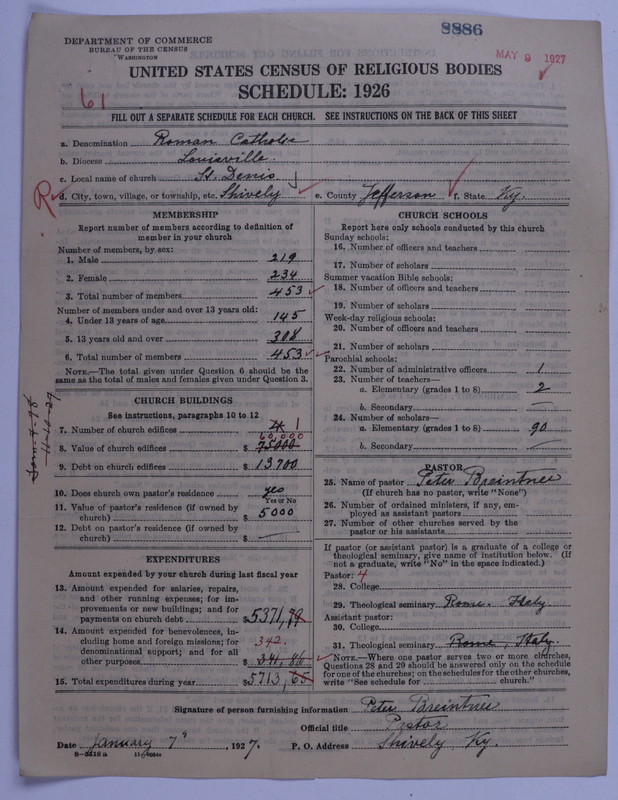 DEPARTMENT OF COMMERCE
BUREAU OF THE CENSUS
WASHINGTON
8886
MAY 9 1927
UNITED STATES CENSUS OF RELIGIOUS BODIES
SCHEDULE: 1926
61
FILL OUT A SEPARATE SCHEDULE FOR EACH CHURCH. SEE INSTRUCTIONS ON THE BACK OF THIS SHEET
a. Denomination Roman Catholic
b. Diocese Louisville.
c. Local name of church St. Denis
R
d. City, town, village, or township, etc. Shively e. County Jefferson f. State Ky.
MEMBERSHIP
Report number of members according to definition of
member in your church
Number of members, by sex:
1. Male 219
2. Female 234
3. Total number of members 453
Number of members under and over 13 years old:
4. Under 13 years of age 145
5. 13 years old and over 308
6. Total number of members 453
NOTE.—The total given under Question 6 should be the
same as the total of males and females given under Question 3.
CHURCH BUILDINGS
See instructions, paragraphs 10 to 12
7. Number of church edifices 1
60,000
8. Value of church edifices $ 75000
9. Debt on church edifices $ 13700
10. Does church own pastor's residence yes
Yes or No
11. Value of pastor's residence (if owned by
church) $ 5000
12. Debt on pastor's residence (if owned by
church) $
EXPENDITURES
Amount expended by your church during last fiscal year
13. Amount expended for salaries, repairs,
and other running expenses; for im-
provements or new buildings; and for
payments on church debt $ 5371,79
14. Amount expended for benevolences, in-
cluding home and foreign missions; for
denominational support; and for all
342.
other purposes $ 341,86
15. Total expenditures during year $ 5713,65
CHURCH SCHOOLS
Report here only schools conducted by this church
Sunday schools:
16. Number of officers and teachers
17. Number of scholars
Summer vacation Bible schools:
18. Number of officers and teachers
19. Number of scholars
Week-day religious schools:
20. Number of officers and teachers
21. Number of scholars
Parochial schools:
22. Number of administrative officers 1
23. Number of teachers—
a. Elementary (grades 1 to 8) 2
b. Secondary
24. Number of scholars—
a. Elementary (grades 1 to 8) 90
b. Secondary
PASTOR
25. Name of pastor Peter Breintner
(If church has no pastor, write "None")
26. Number of ordained ministers, if any, em-
ployed as assistant pastors
27. Number of other churches served by the
pastor or his assistants
If pastor (or assistant pastor) is a graduate of a college or
theological seminary, give name of institution below. (If
not a graduate, write "No" in the space indicated.)
Pastor: 4
28. College
29. Theological seminary Rome, Italy
Assistant pastor:
30. College
31. Theological seminary Rome, Italy.
NOTE.—Where one pastor serves two or more churches,
Questions 28 and 29 should be answered only on the schedule
for one of the churches; on the schedules for the other churches,
write "See schedule for church."
Signature of person furnishing information Peter Breintner
Official title Pastor
Date January 7", 1927. P. O. Address Shively Ky.